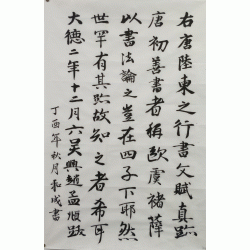 右唐陸柬之行書文賦真跡
唐初善書者稱歐虞褚薛
以書法論之豈在四子下耶然
世罕有其跡故知之者希耳
大德二年十二月六吴興趙孟頫跋
丁酉年秋月 成書